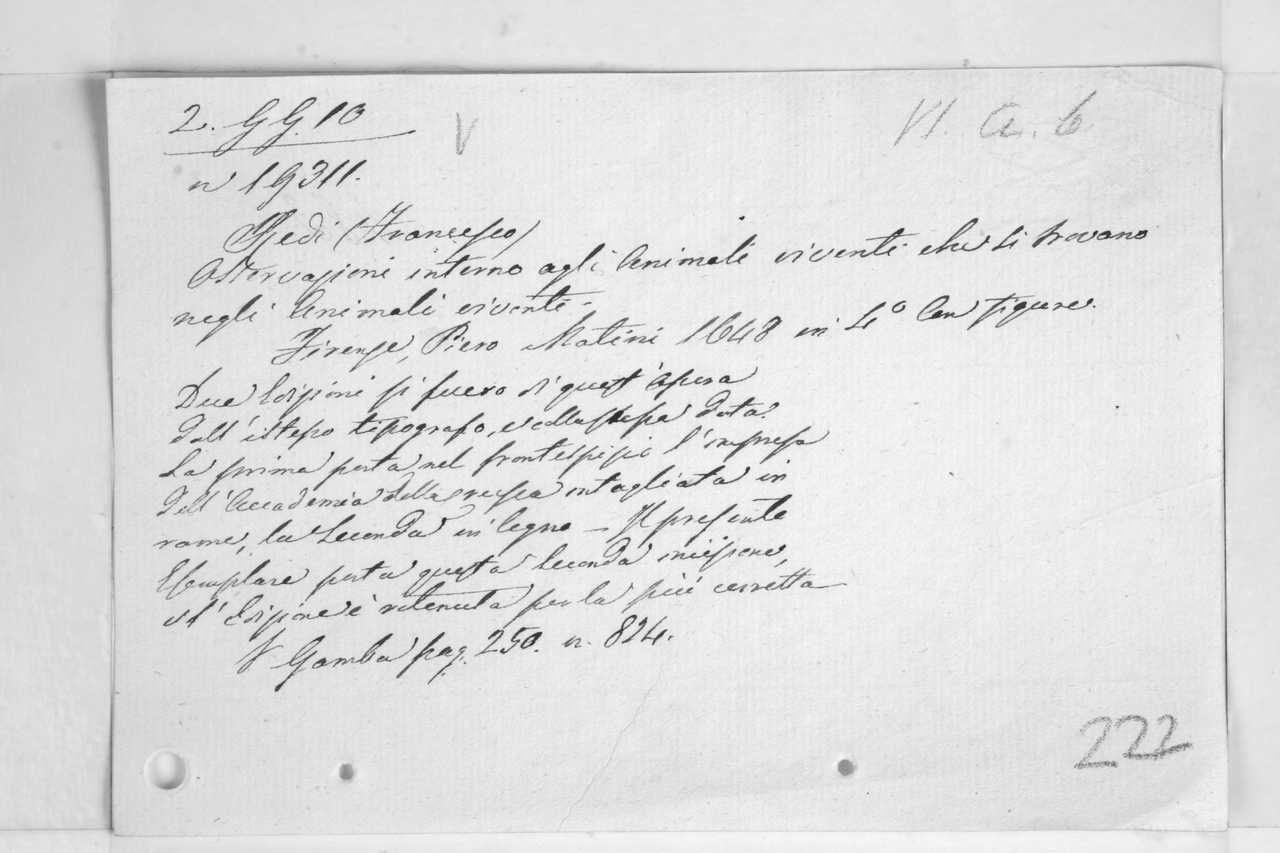 2. G G. 10
V
VI. a. 6
n 19311.
Redi (Francesco)
Osservazioni intorno agli Animali viventi che si trovano
negli Animali viventi.
Firenze, Piero Matini 1648 in 4º Con figure.
Due Edizioni si fuero di quest'opera
dall'istesso tipografo, e colla stessa data.
La prima porta nel frontespizio l'impresa
dell'Accademia della crusca intagliata in
rame, la Seconda in legno – Il presente
Esemplare porta questa seconda incisione,
e l'Edizione è ritenuta per la più corretta
V Gamba pag. 250. n. 824.
222